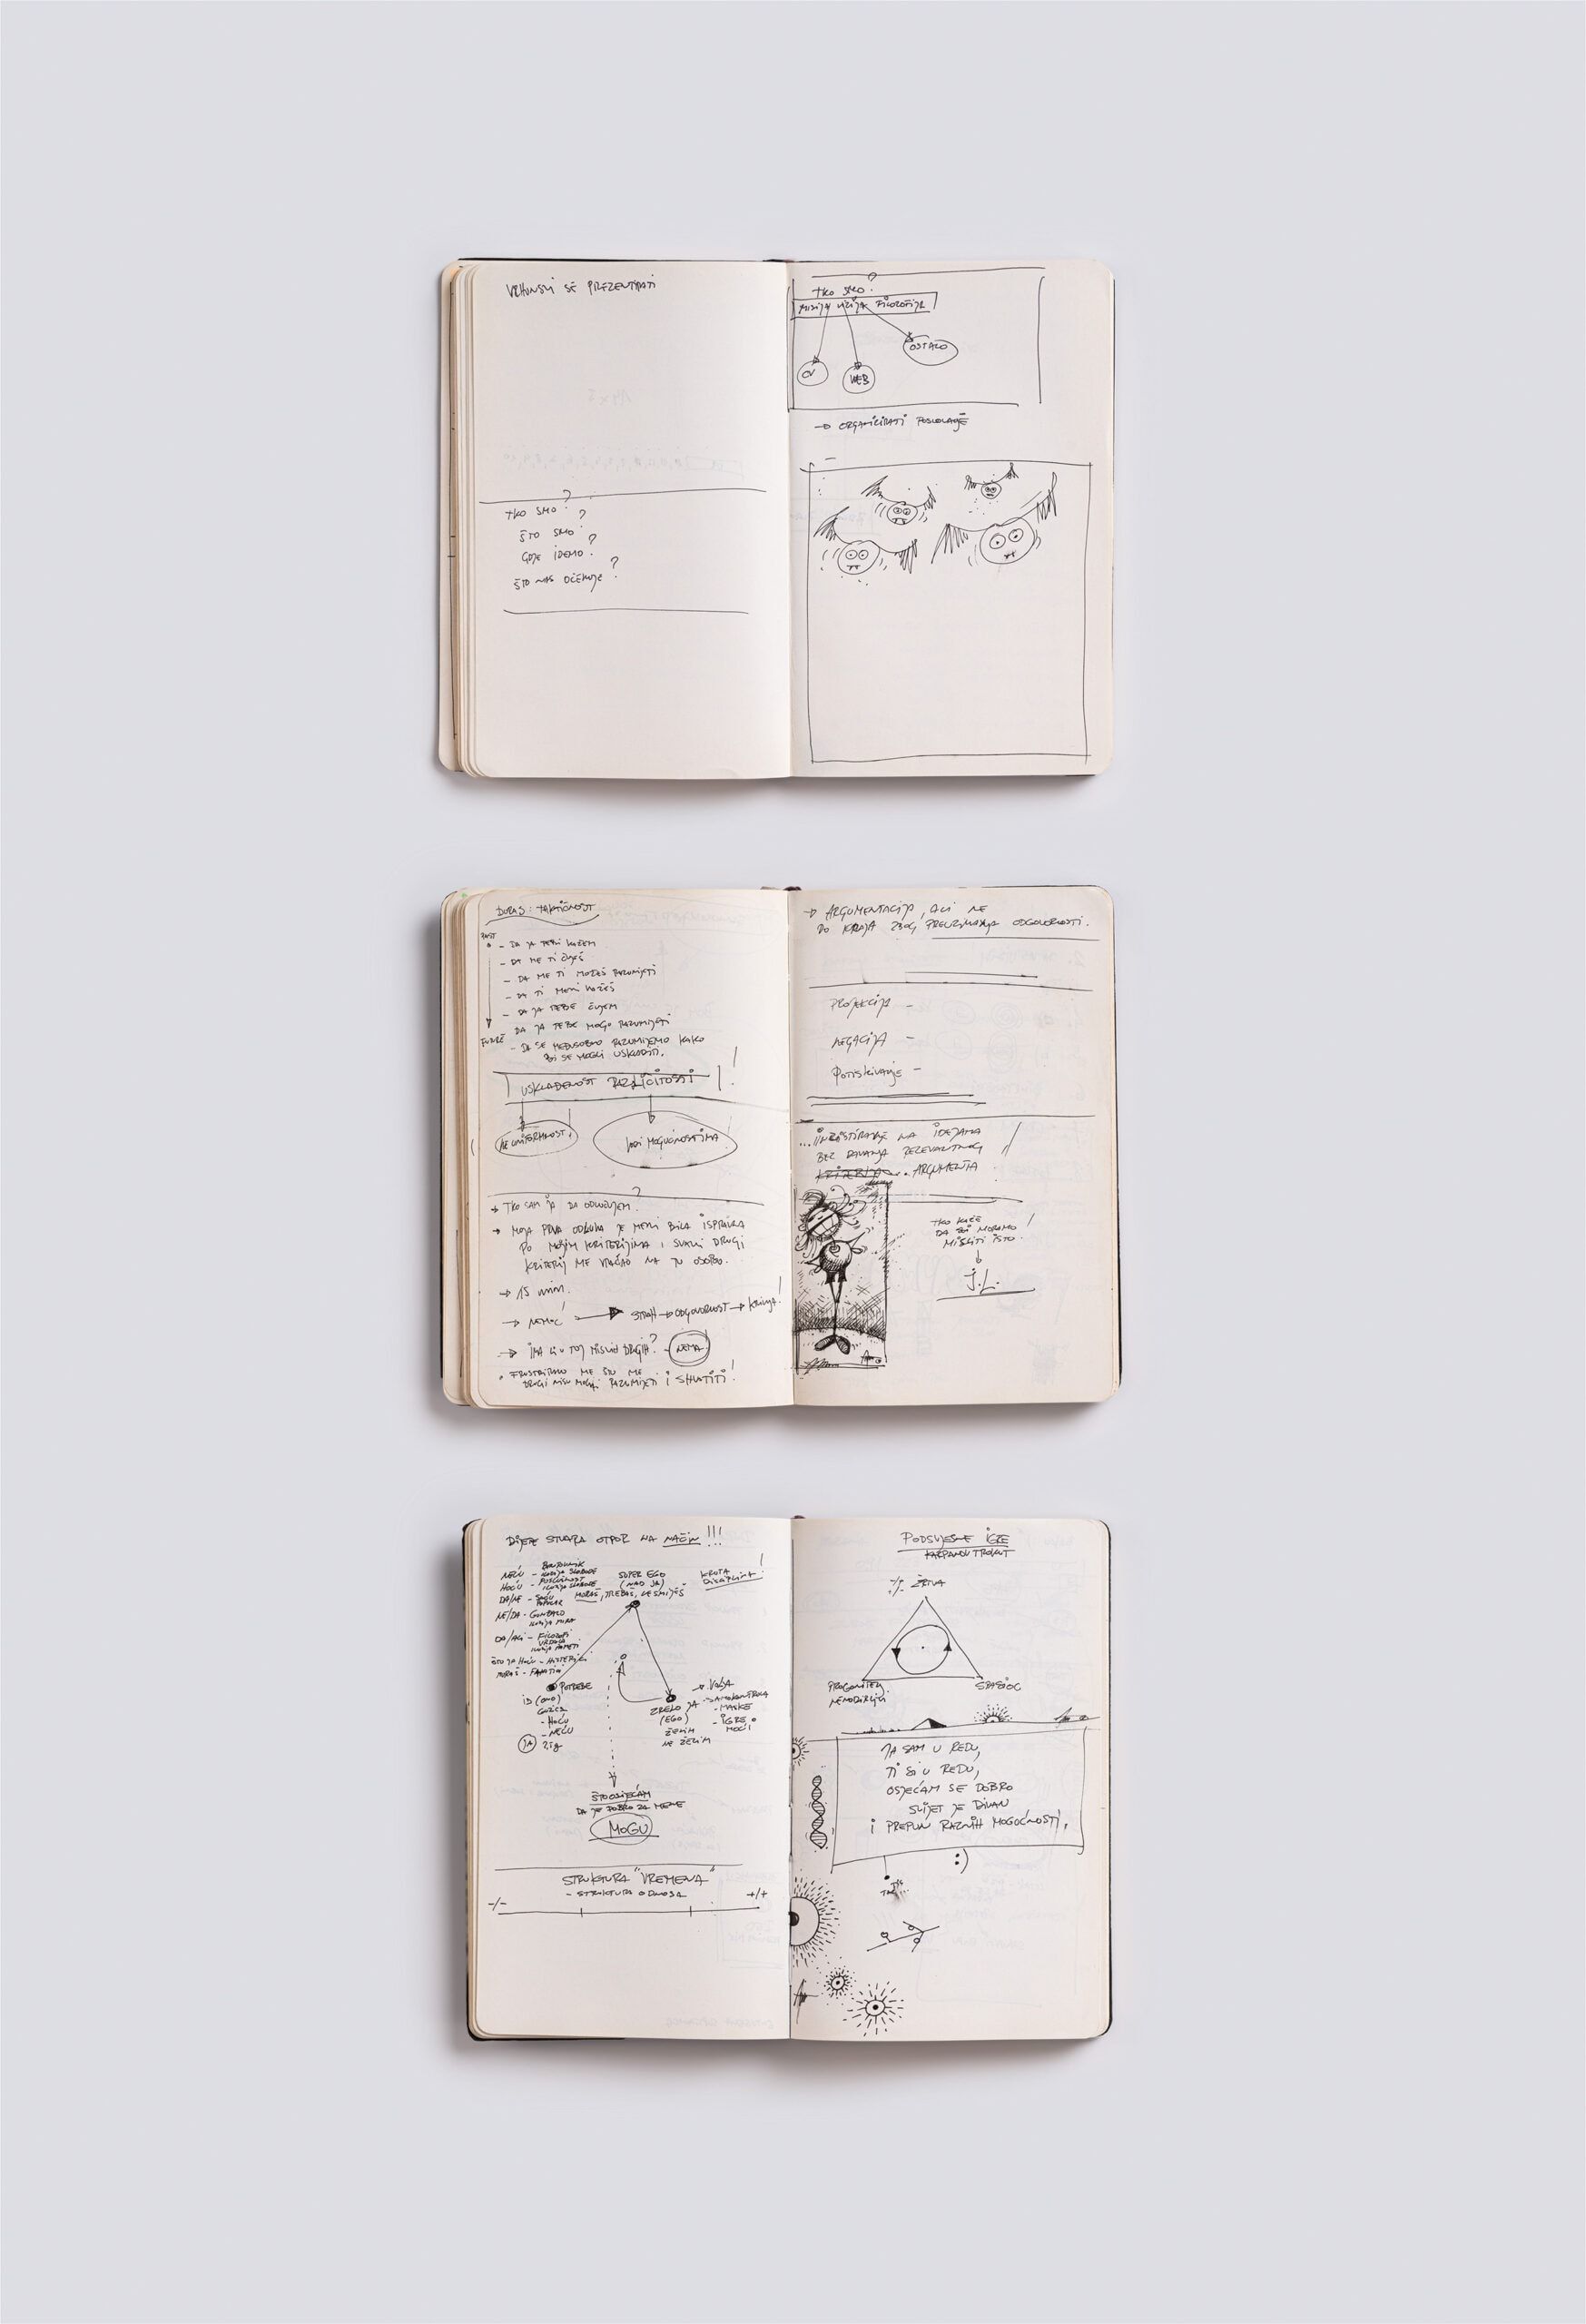 VRHUNSKI SE PREZENTIRATI
TKO SMO?
ŠTO SMO?
GDJE IDEMO?
ŠTO NAS OČEKUJE?
TKO SMO?
MISIJA VIZIJA FILOZOFIJA
CV
WEB
OSTALO
→ ORGANIZIRATI POSLOVANJE
TAKTIČNOST
PAST
- DA JA TEBI KAŽEM
- DA ME TI ČUJEŠ
- DA ME TI MOŽEŠ RAZUMIJETI
- DA TI MENI KAŽEŠ
- DA JA TEBE ČUJEM
- DA JA TEBE MOGU RAZUMIJETI
- DA SE MEĐUSOBNO RAZUMIJEMO KAKO
BI SE MOGLI USKLADITI.
USKLAĐENOST RAZLIČITOSTI!
NE UNIFORMNOST!
MOGUĆNOSTIMA
→ TKO SAM JA DA ODLUČUJEM?
→ MOJA PRVA ODLUKA JE MENI BILA ISPRAVNA
PO MOJIM KRITERIJIMA I SVAKI DRUGI
KRITERIJ ME VRAĆAO NA TU OSOBU.
→ 15 min.
→ NEMOĆ! → STRAH → ODGOVORNOST → KRIVNJA!
→ IMA LI U TOJ MISLIH DRUGIH? - NEMA
• FRUSTRIRALO ME ŠTO ME
DRUGI NISU MOGLI RAZUMIJETI I SHVATITI!
→ ARGUMENTACIJA, ALI NE
DO KRAJA ZBOG PREUZIMANJA ODGOVORNOSTI.
PROJEKCIJA -
NEGACIJA -
POTISKIVANJE -
...INZISTIRANJE NA IDEJAMA
BEZ DAVANJA RELEVANTNOG
KRITERIJA. ARGUMENTA!
TKO KAŽE
DA SVI MORAMO
MISLITI ISTO!
J.L.
DIJETE STVARA OTPOR NA NAČIN!!!
NEĆU - BUNTOVNIK
ILUZIJA SLOBODE
HOĆU - POSLUŠNOST
ILUZIJA SLOBODE
DA/NE -
NE/DA - GUNĐALO
ILUZIJA MIRA
DA/ALI - FILOZOFI
ILUZIJA PAMETI
MORAŠ - FANATIK
SUPER EGO
(NAD JA)
MORAŠ, TREBAŠ, NE SMIJEŠ
KROTA
DISCIPLINA!
POTREBE
ID (ONO)
- HOĆU
- NEĆU
JA
ZRELO JA
(EGO)
ŽELIM
NE ŽELIM
→ VOLJA
- SAMOKONTROLA
- MASKE
- IGRE MOĆI
ŠTO OSJEĆAM
DA JE DOBRO ZA MENE
MOGU
STRUKTURA "VREMENA"
- STRUKTURA ODNOSA
-/-
+/+
PODSVJESNE IGRE
KARPANOV TROKUT
-/- ŽRTVA
PROGONITELJ
SPASIOC
JA SAM U REDU,
TI SI U REDU,
OSJEĆAM SE DOBRO
SVIJET JE DIVAN
I PREPUN RAZNIH MOGUĆNOSTI.
:)